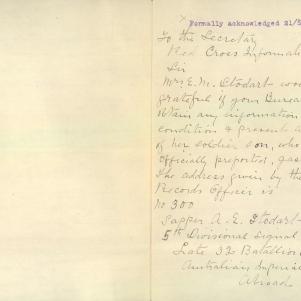 Formally acknowledged 21/5
To the Secretary
Red Cross Informati
Sir
Mrs E. M. Stodart wou
grateful if your Burea
obtain any information
condition & present a
of her soldier son, who
officially reported, gas
The address given by the
Records Officer is
No 300
Sapper A. E. Stodart
5th Divisional Signal
Late 32 Batallion
Australian Imperial
Abroad